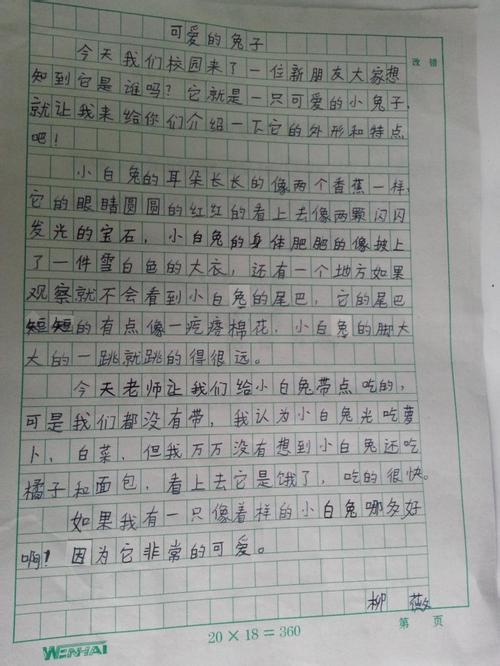 可爱的兔子
今天我们校园来了一位新朋友大家想
改错
知到它是谁吗？它就是一只可爱的小兔子，
就让我来给你们介绍一下它的外形和特点
吧！
小白兔的耳朵长长的像两个香蕉一样，
它的眼睛圆圆的红红的看上去像两颗闪闪
发光的宝石，小白兔的身体肥肥的像披上
了一件雪白色的大衣，还有一个地方如果
观察就不会看到小白兔的尾巴，它的尾巴
短短的有点像一疙瘩棉花，小白兔的脚大
大的一跳就跳的得很远。
今天老师让我们给小白兔带点吃的，
可是我们都没有带，我认为小白兔光吃萝
卜、白菜，但我万万没有想到小白兔还吃
橘子和面包，看上去它是饿了，吃的很快。
如果我有一只像着样的小白兔哪多好
啊！因为它非常的可爱。
柳薇
WENHAI
20×18=360
第 页